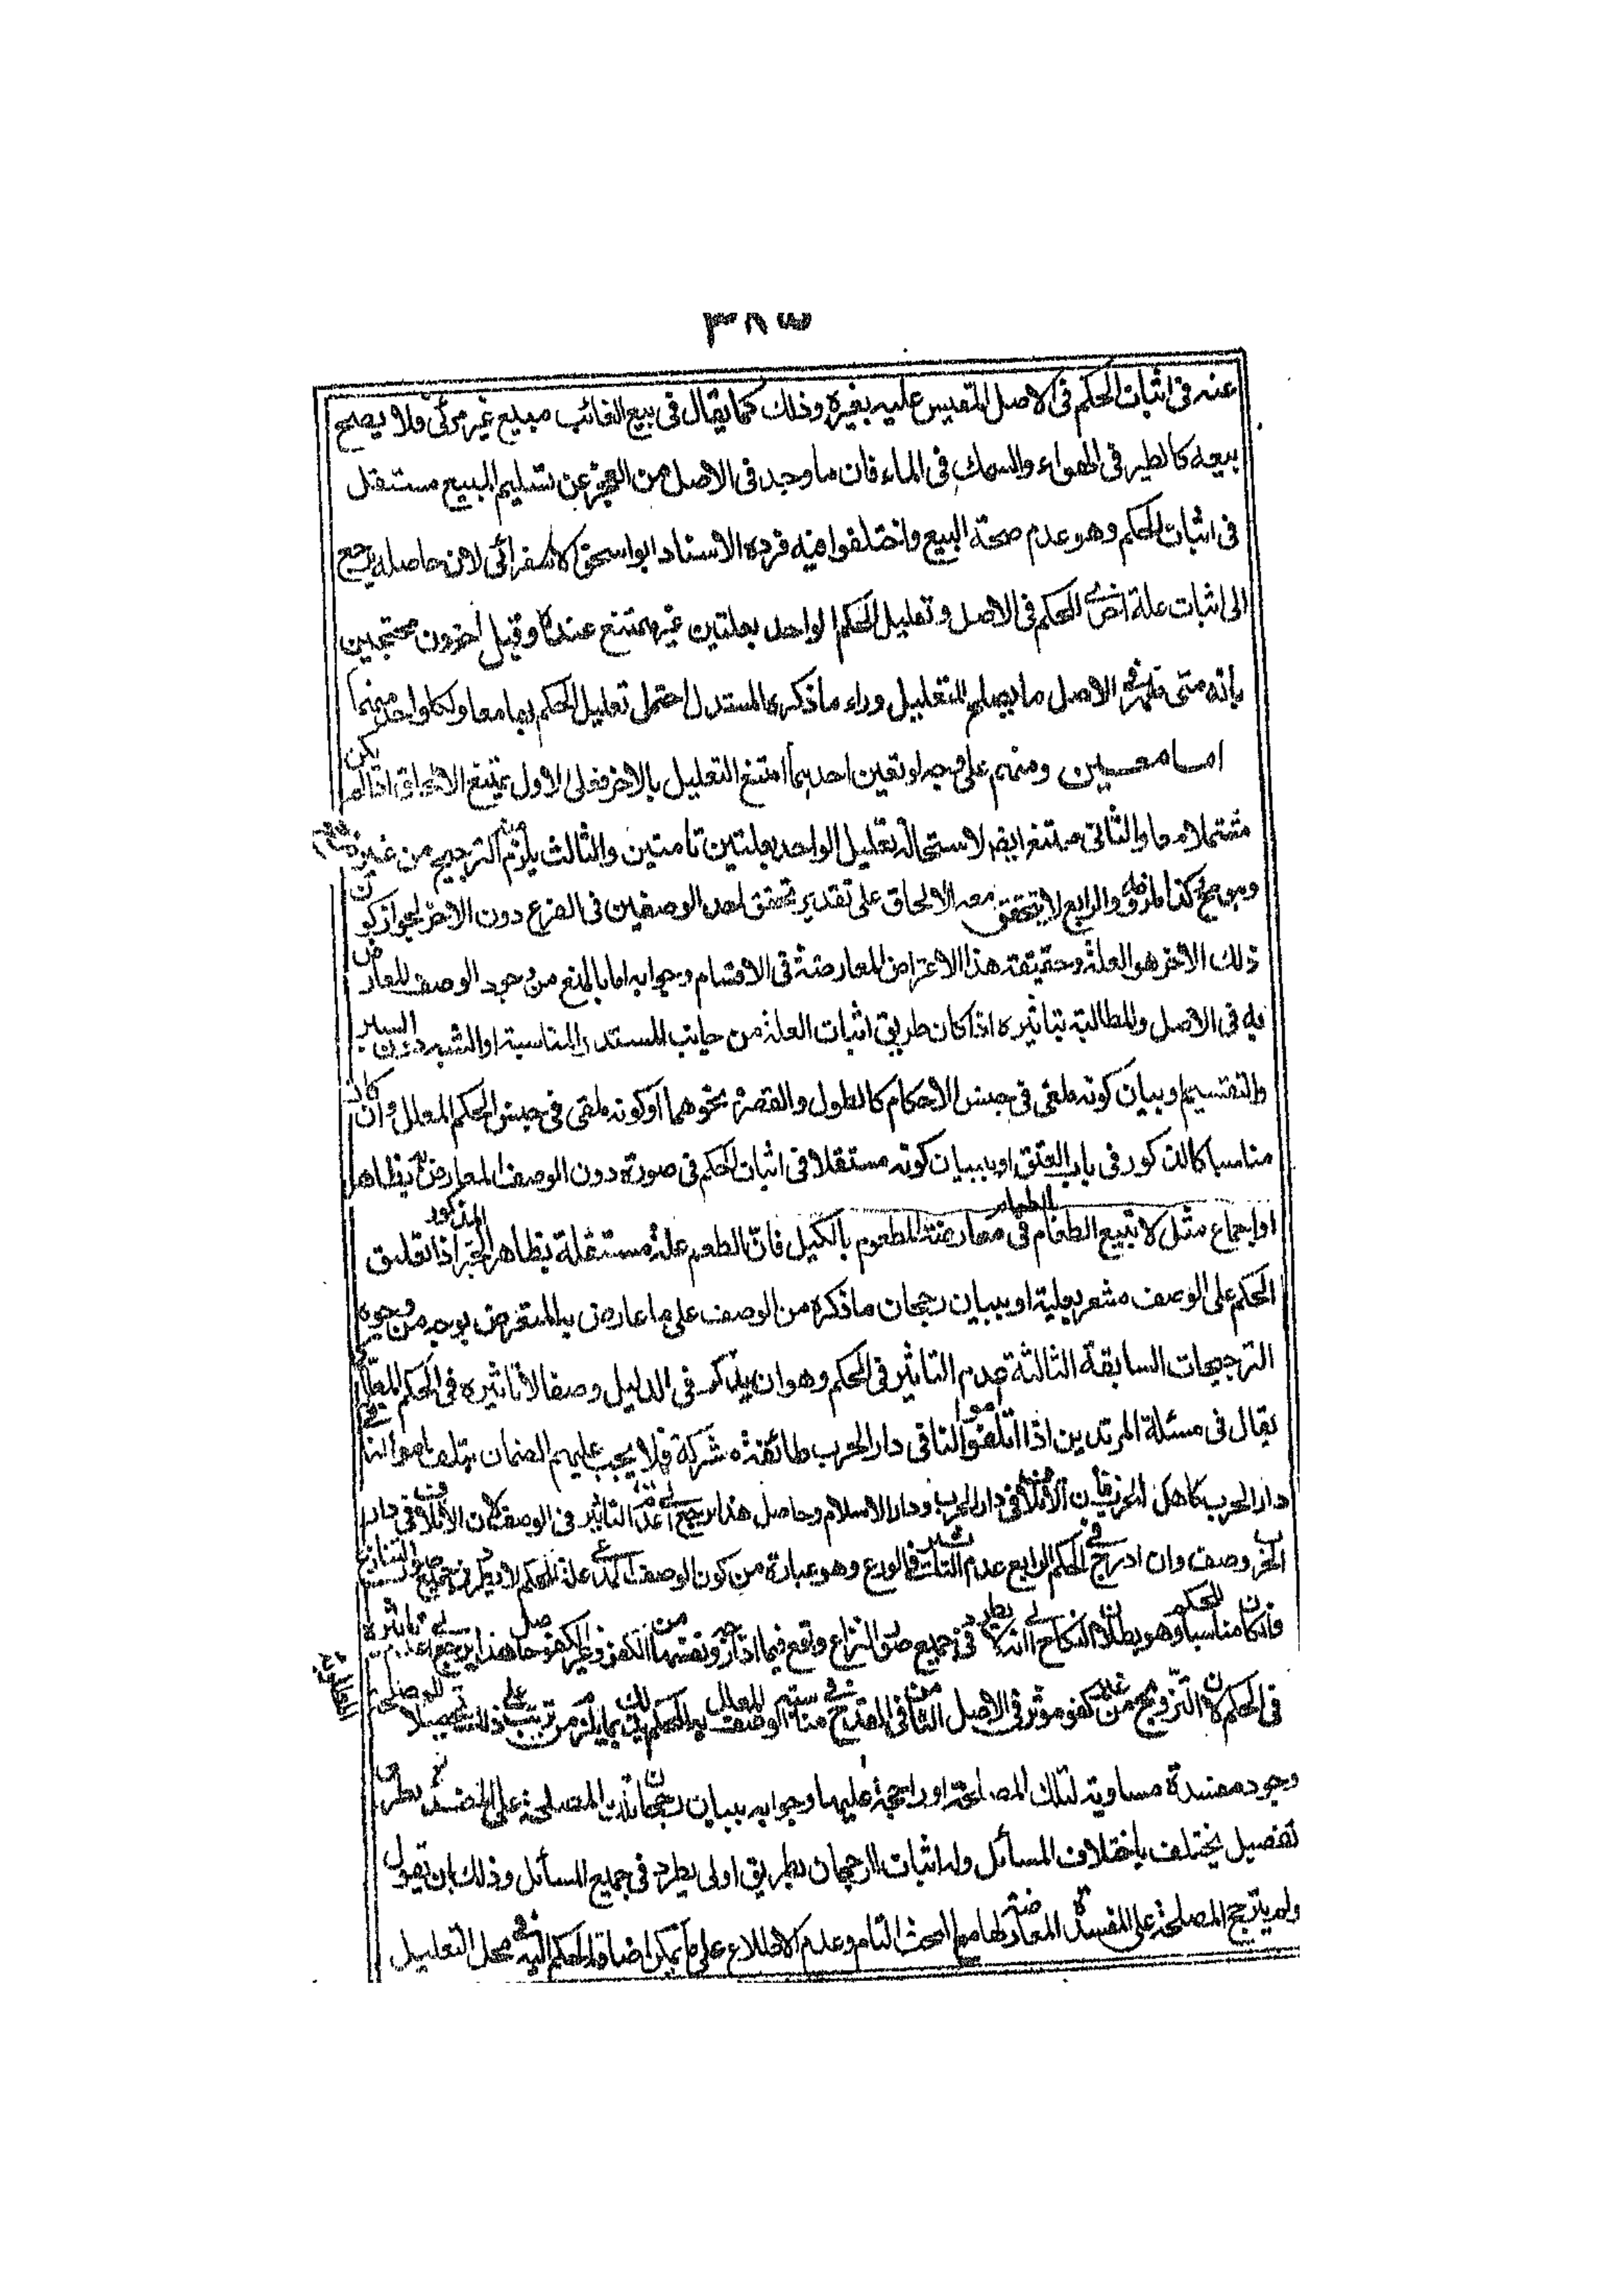 ٣٨٥
عنه فى اثبات الحكم فى الاصل المقيس عليه بغيره وذلك كما يقال فى بيع الغائب مبيع غير مرئى فلا يصح
بيعه كالطير فى الهواء والسمك فى الماء فان ما وجد فى الاصل من العجز عن تسليم المبيع مستقل
فى اثبات الحكم وهو عدم صحة البيع واختلفوا فيه فرده الاستاد ابو اسحق الاسفرائنى لان حاصله يرجع
الى اثبات علة اخرى للحكم فى الاصل وتعليل الحكم الواحد بعلتين غير ممتنع عندنا وقبل اخرون محتجين
بانه متى ظهر فى الاصل ما يصلح للتعليل وراء ما ذكره المستدل احتمل تعليل الحكم بهما معا ولكل واحد منهما
اما معين ومنهم على جهة او تعين احدهما امتنع التعليل بالاخر فعلى الاول يمتنع الالحاق اذا لم يكن
مشتملا معا والثانى ممتنع ايضا لاستحالة تعليل الواحد بعلتين تامتين والثالث يلزم الترجيح من غير مرجح
والرابع لا يتحقق معه الالحاق على تقدير تحقق احد الوصفين فى الفرع دون الاخر لجواز كون
ذلك الاخر هو العلة وحقيقة هذا الاعتراض المعارضة فى الاقسام وجوابه اما بالمنع من وجود الوصف المعارض
به فى الاصل والمطالبة بتاثيره اذا كان طريق اثبات العلة من جانب المستدل المناسبة او الشبه دون السبر
والتقسيم وبيان كونه ملغى فى جنس الاحكام كالطول والقصر ونحوهما او كونه ملغى فى جنس الحكم المعلل وان كان
مناسبا كالذكورة فى باب العتق او ببيان كونه مستقلا فى اثبات الحكم فى صورة دون الوصف المعارض به بظاهر
او اجماع مثل لا تبيع الطعام بالطعام فى معارضة المطعوم بالكيل فان الطعم علة مستقلة بظاهر الخبر المذكور اذ تعليق
الحكم على الوصف مشعر بعلية او ببيان رجحان ما ذكره من الوصف على ما عارض به المتعرض بوجه من وجوه
الترجيحات السابقة الثالثة عدم التاثير فى الحكم وهو ان يذكر فى الدليل وصفا لا تاثير له فى الحكم المعلل
يقال فى مسئلة المرتدين اذا اتلفوا اموالنا فى دار الحرب طائفة مشركة فلا يجب عليهم الضمان بتلف اموالنا فى
دار الحرب كاهل الحرب فان الاتلاف فى دار الحرب ودار الاسلام وحاصل هذا يرجع الى عدم التاثير فى الوصف لان الاتلاف فى دار
الحرب وصف وان ادرج فى الحكم الرابع عدم التاثير فى الفرع وهو عبارة من كون الوصف المدعى علة للحكم لا يطرد فى جميع صور التنازع
فان كان مناسبا للحكم وهو بطلان النكاح الا انه لا يطرد فى جميع صور النزاع وقع فيما اذا زوجت نفسها من الكفو وغير الكفو حاصل هذا يرجع الى عدم تاثيره
فى الحكم لان التزويج من غير كفو مؤثر فى الاصل الثانى القدح فى مناسبة الوصف المعلل به للحكم
وجود مفسدة مساوية لتلك المصلحة او راجحة عليها وجوابه ببيان رجحان تلك المصلحة على المفسدة بطريق
تفصيل يختلف باختلاف المسائل وله اثبات الرجحان بطريق اولى يطرد فى جميع المسائل وذلك بان يقول
ولم يترجح المصلحة على المفسدة المعارضة لها مع البحث التام وعدم الاطلاع على ما يمكن اضافة الحكم اليه فى محل التعليل